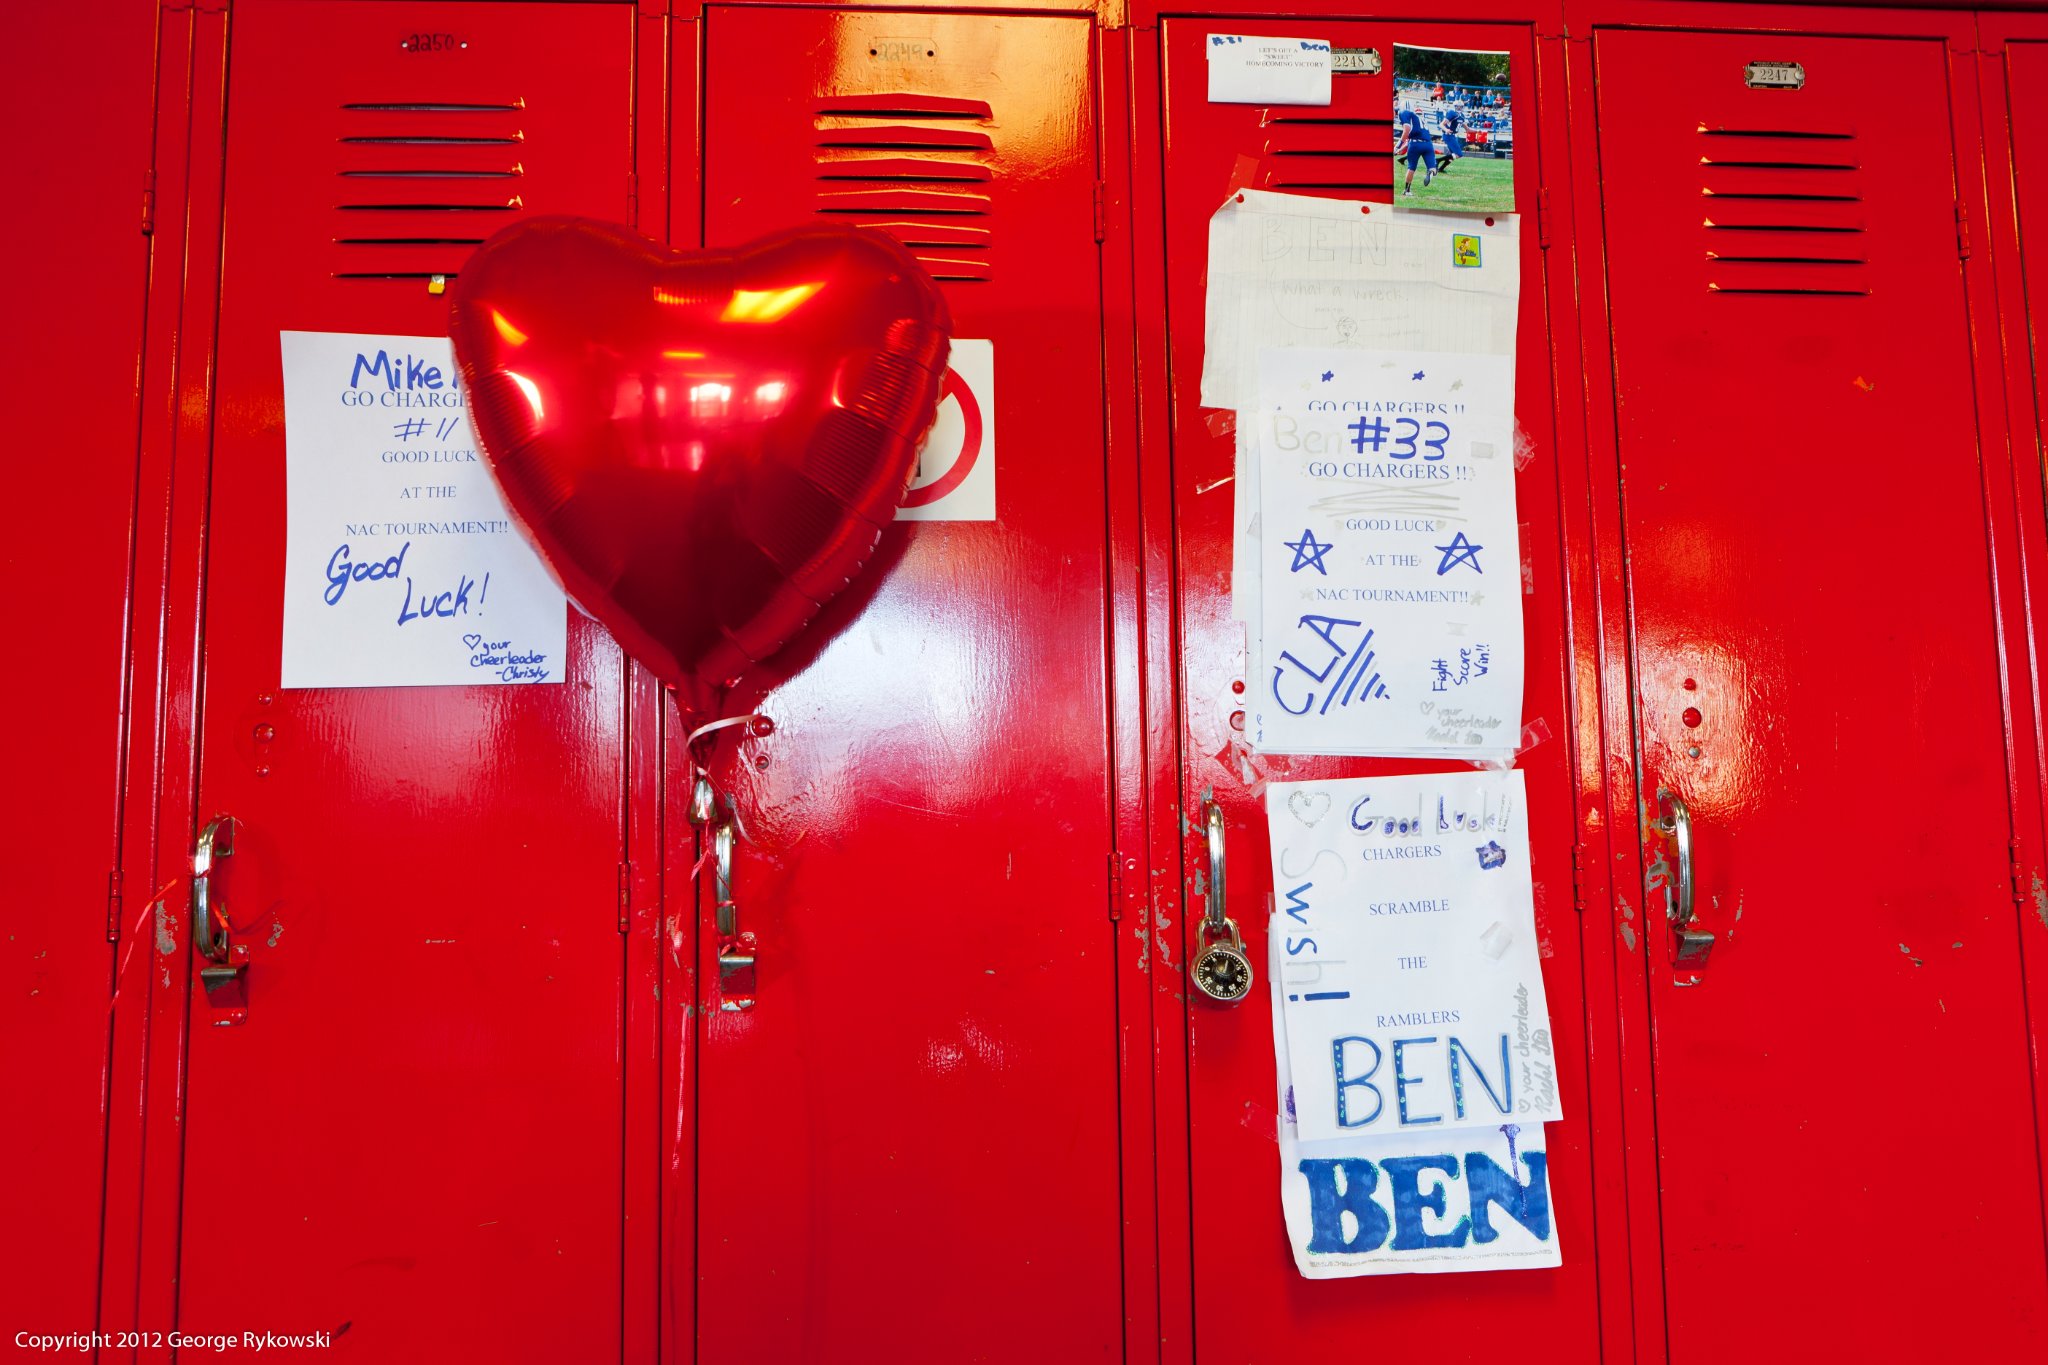 2250
2249
#31 Ben
LET'S GET A
"SWEET"
HOMECOMING VICTORY
2248
2247
Mike
GO CHARGE
#11
GOOD LUCK
AT THE
NAC TOURNAMENT!!
Good
Luck!
♡ your
Cheerleader
-Christy
BEN
What a wreck.
GO CHARGERS !!
Ben #33
GO CHARGERS !!
GOOD LUCK
AT THE
NAC TOURNAMENT!!
CLA
Fight
Score
Win!!
♡ your
cheerleader
Good Luck!!
CHARGERS
Swish!
SCRAMBLE
THE
RAMBLERS
BEN
♡ your cheerleader
BEN
Copyright 2012 George Rykowski